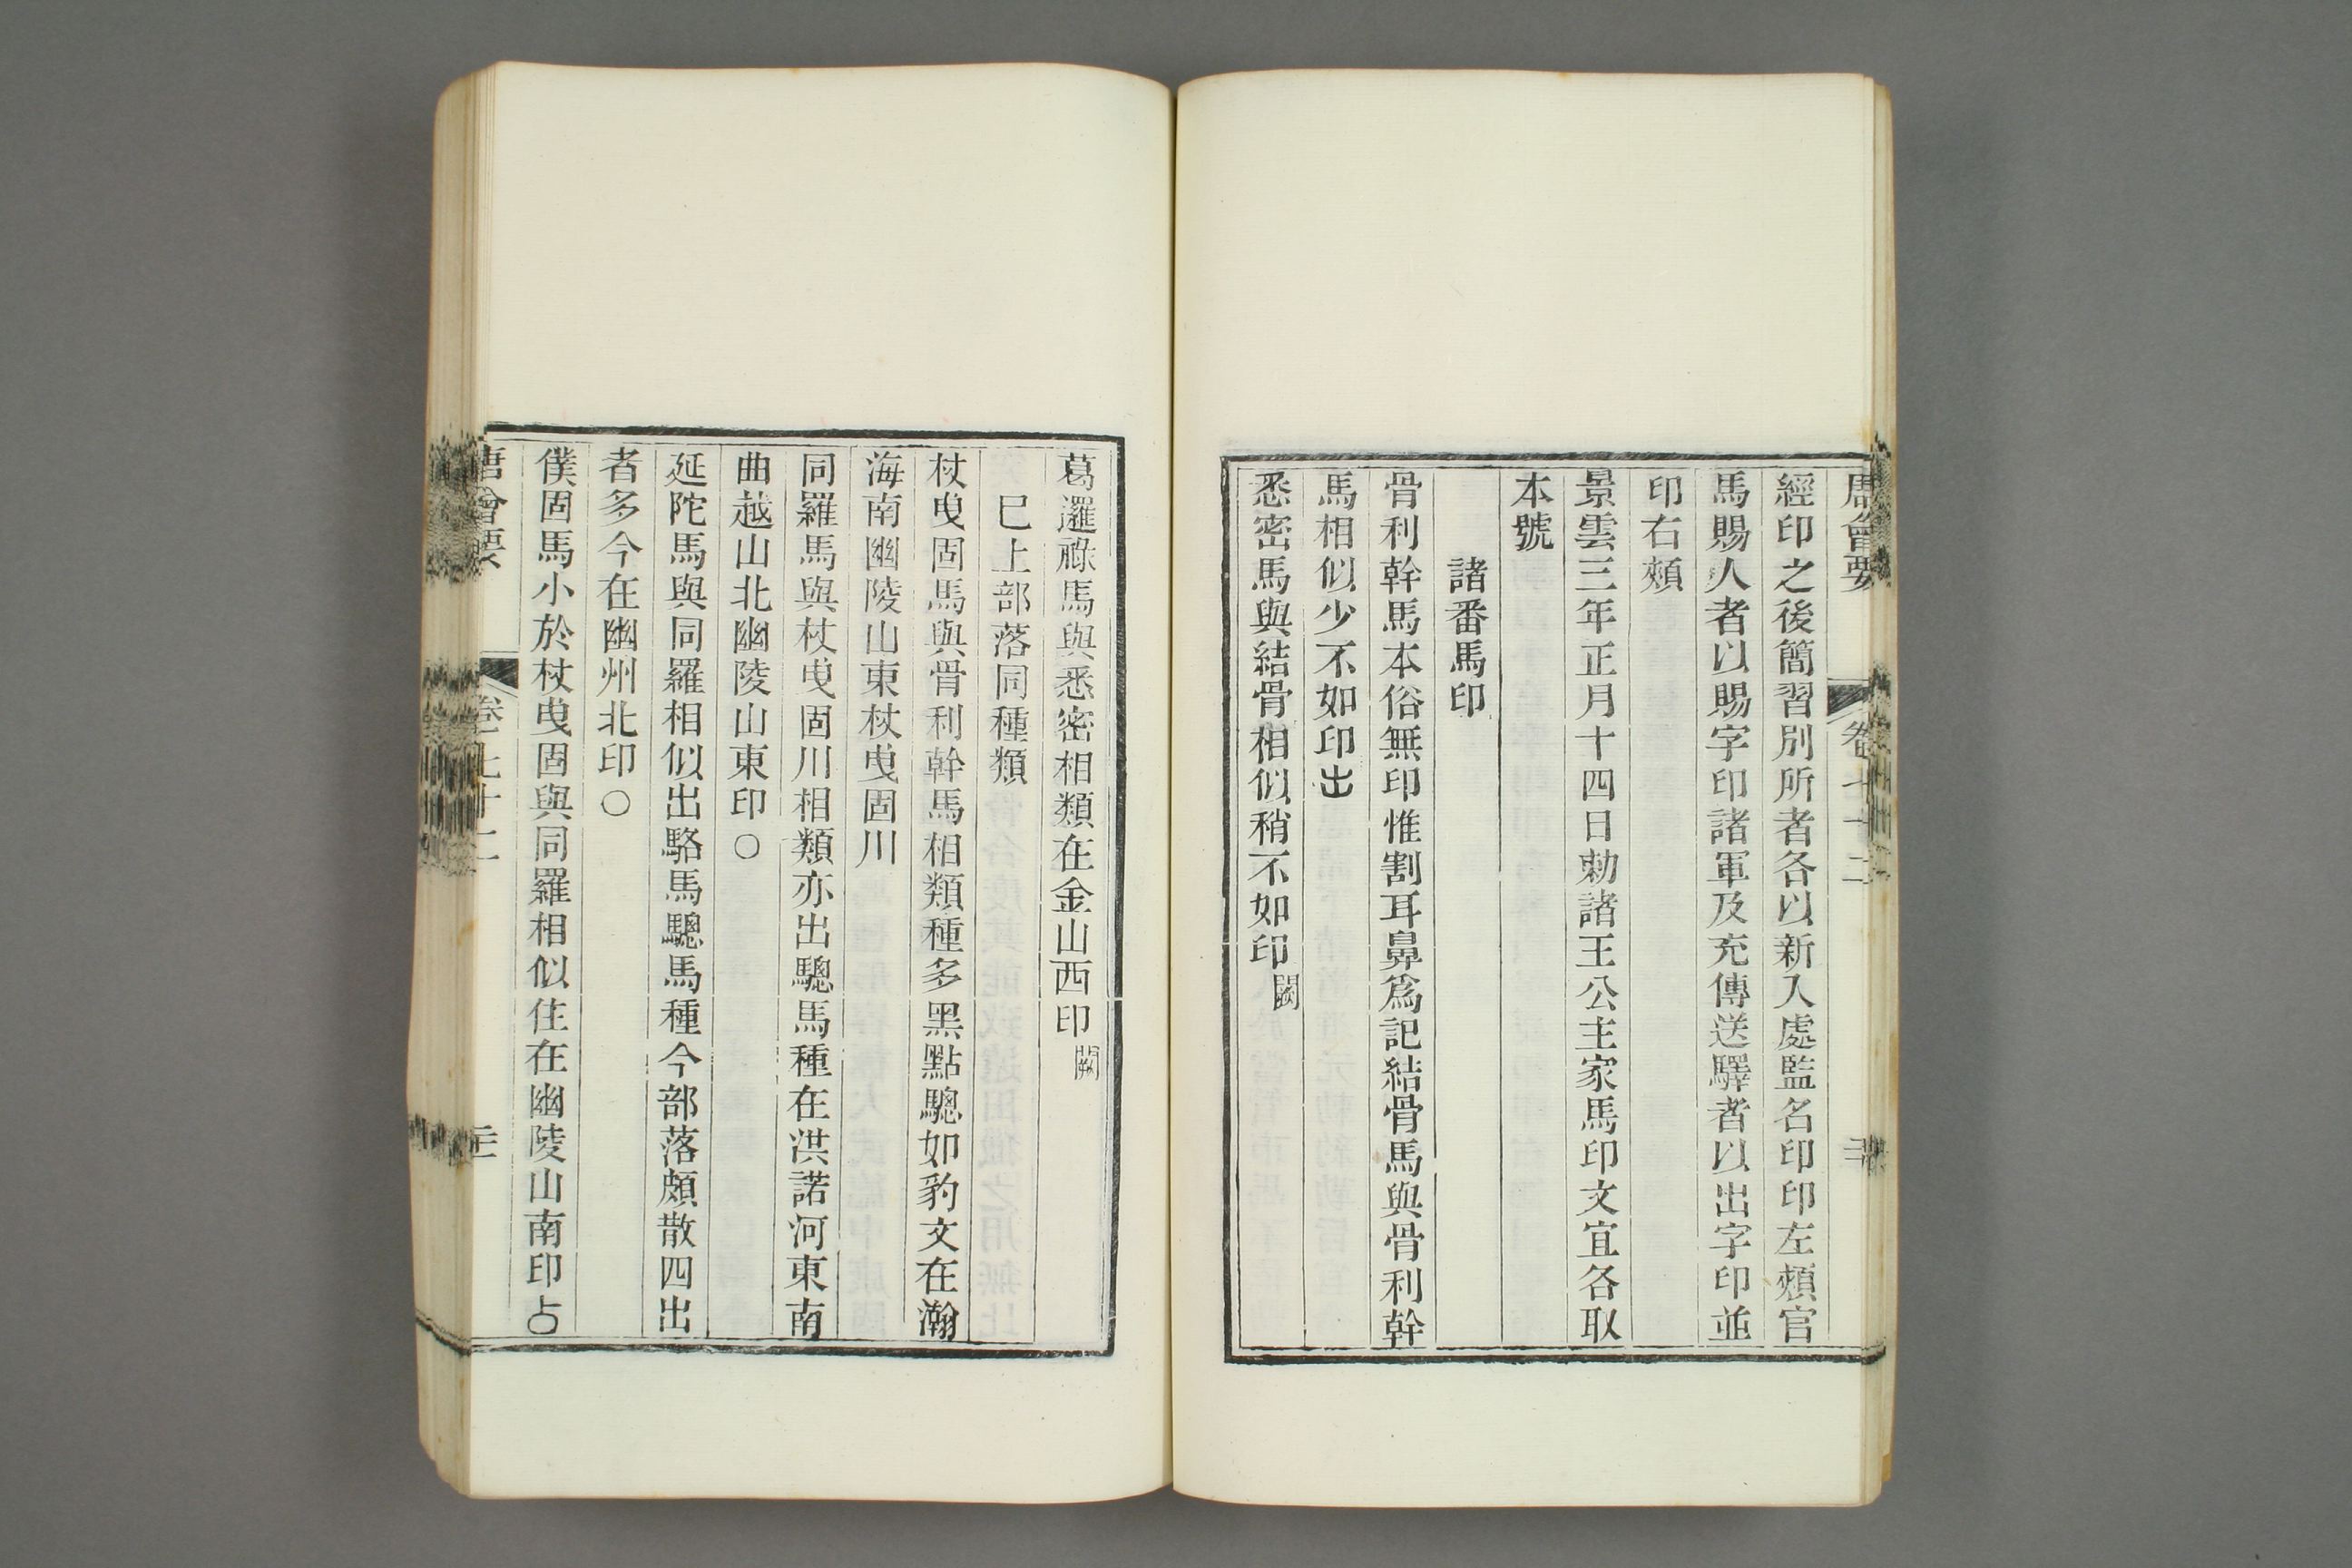 唐會要 卷七十二
經印之後簡習別所者各以新入處監名印印左頰官
馬賜人者以賜字印諸軍及充傳送驛者以出字印並
印右頰
景雲三年正月十四日勅諸王公主家馬印文宜各取
本號
諸番馬印
骨利幹馬本俗無印惟割耳鼻爲記結骨馬與骨利幹
馬相似少不如印出
悉密馬與結骨相似稍不如印闕
葛邏祿馬與悉密相類在金山西印闕
巳上部落同種類
杖曳固馬與骨利幹馬相類種多黑點驄如豹文在瀚
海南幽陵山東杖曳固川
同羅馬與杖曳固川相類亦出驄馬種在洪諾河東南
曲越山北幽陵山東印〇
延陀馬與同羅相似出駱馬驄馬種今部落頗散四出
者多今在幽州北印〇
僕固馬小於杖曳固與同羅相似住在幽陵山南印
唐會要 卷七十二